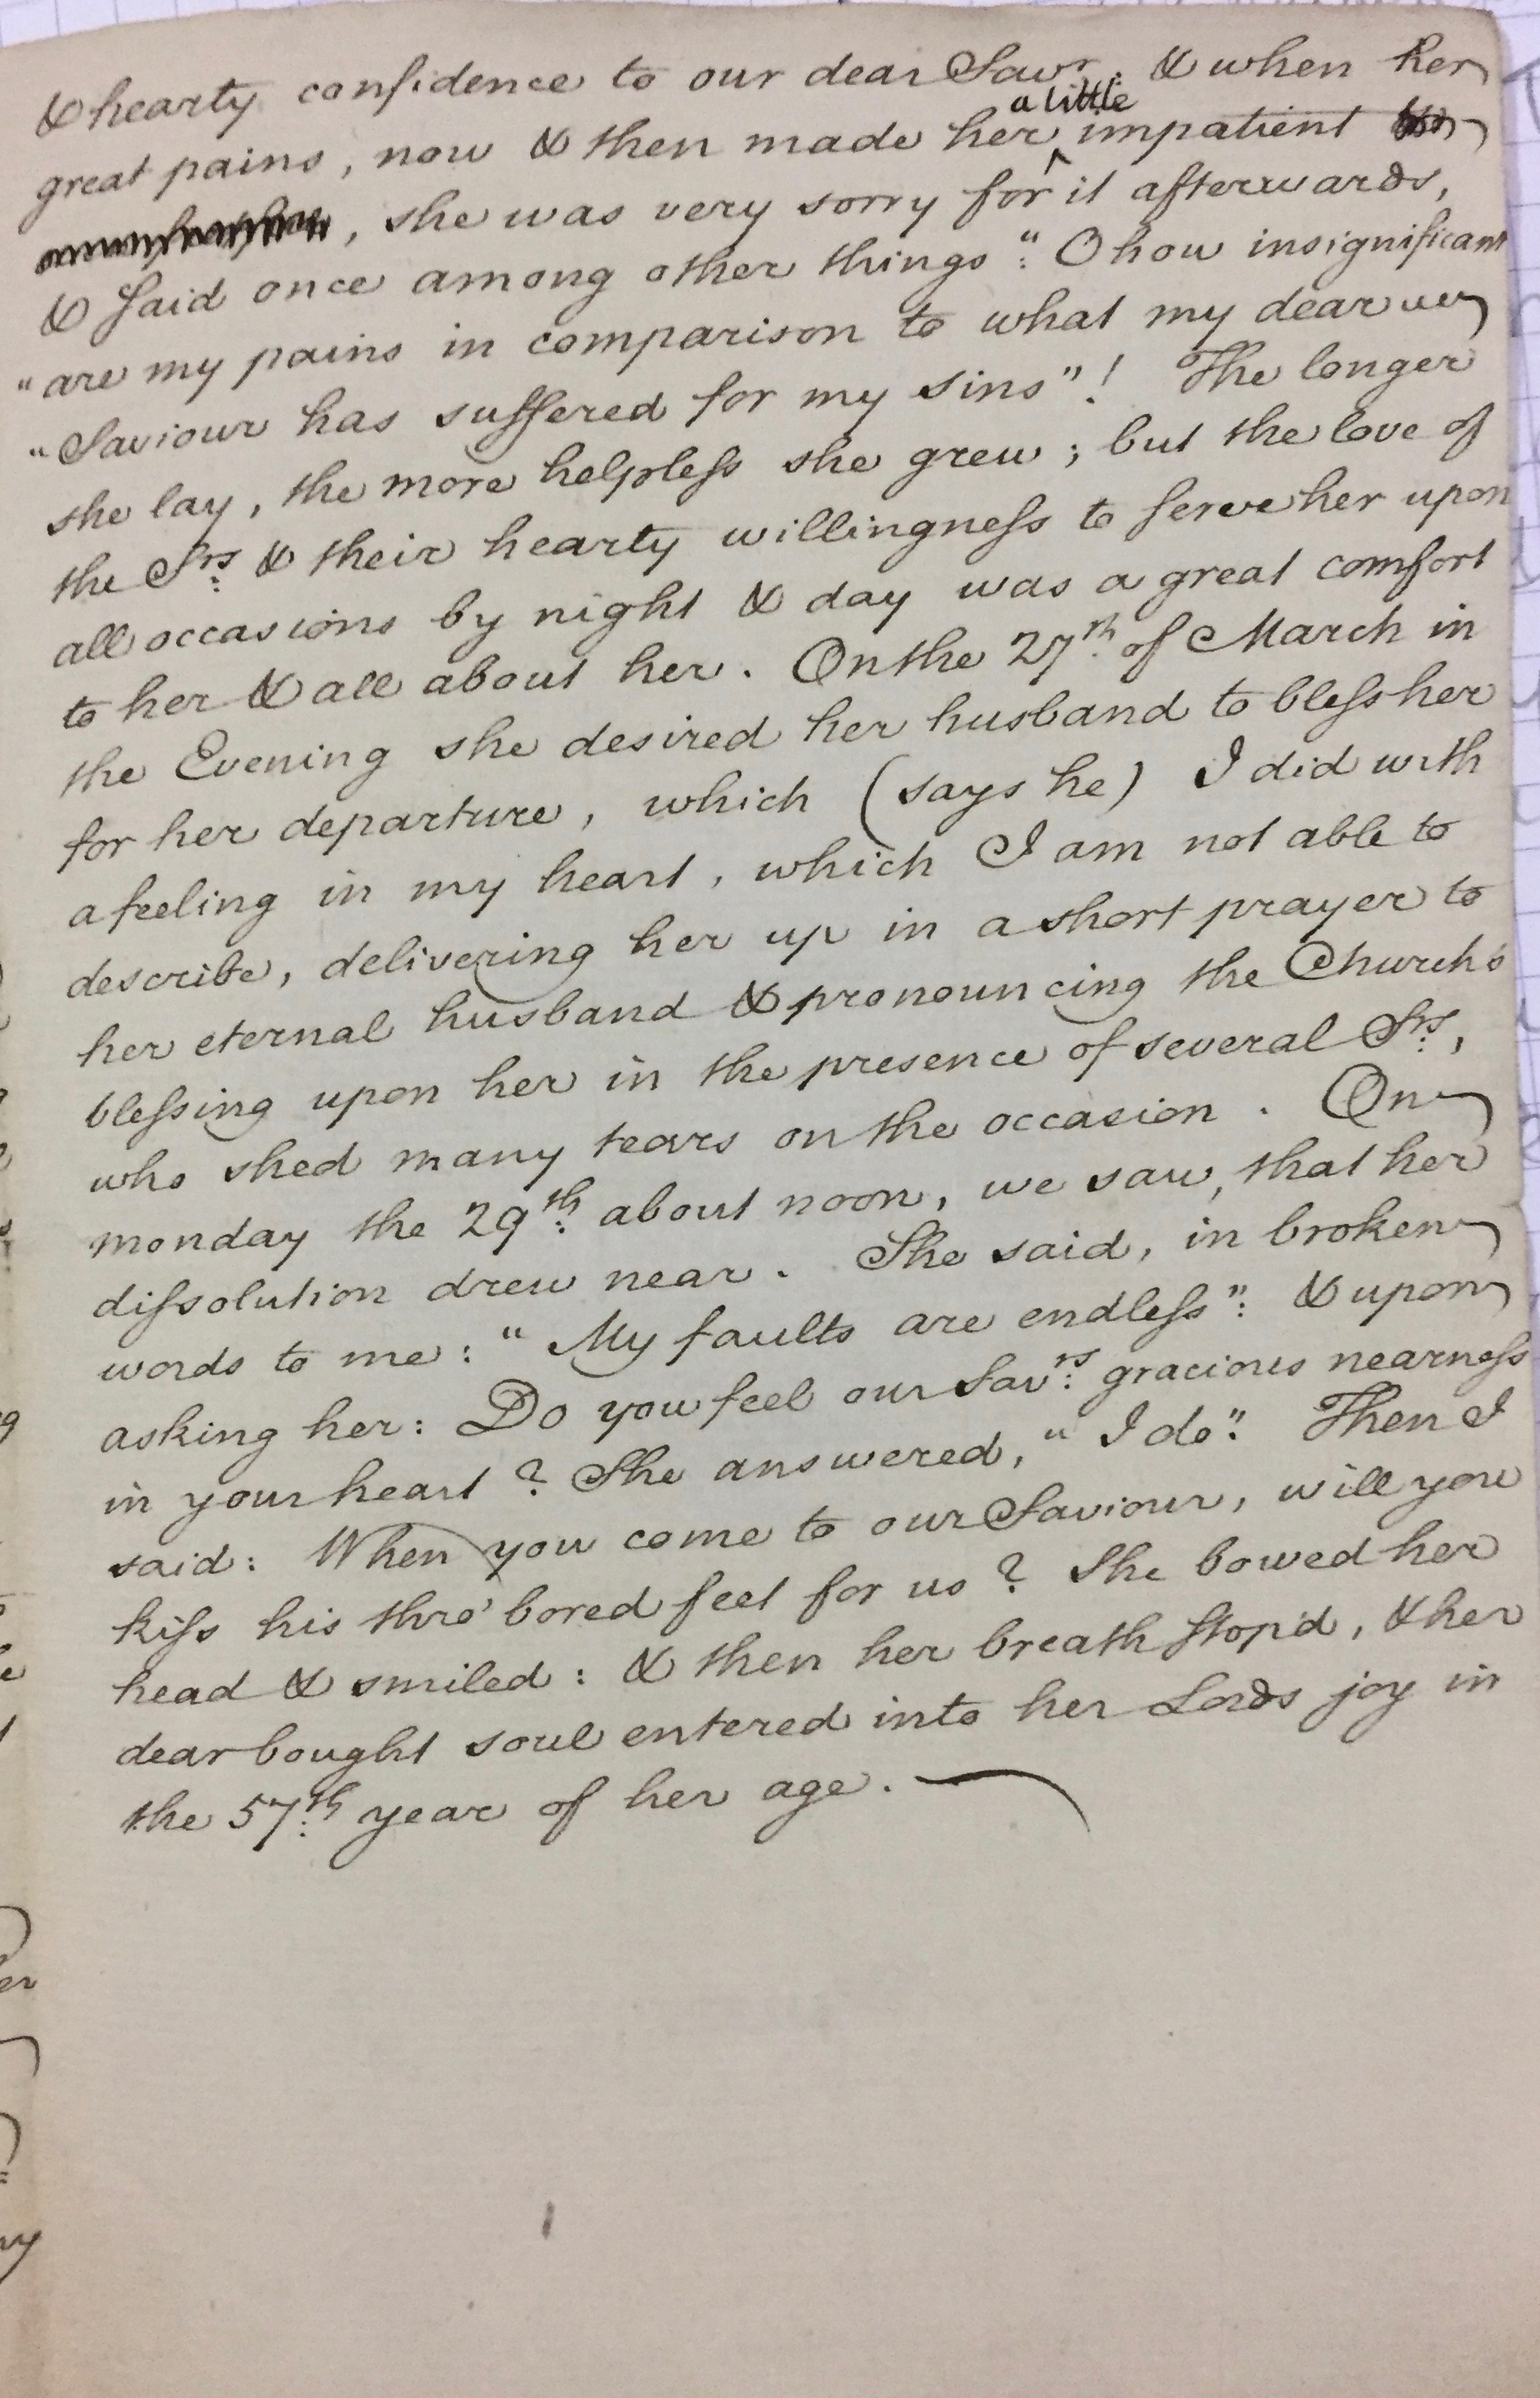 & hearty confidence to our dear Savr: & when her
great pains, now & then made her a little impatient
, she was very sorry for it afterwards,
& said once among other things: "O how insignificant
"are my pains in comparison to what my dear
"Saviour has suffered for my sins"! The longer
she lay, the more helpless she grew; but the love of
the Srs: & their hearty willingness to serve her upon
all occasions by night & day was a great comfort
to her & all about her. On the 27th: of March in
the Evening she desired her husband to bless her
for her departure, which (says he) I did with
a feeling in my heart, which I am not able to
describe, delivering her up in a short prayer to
her eternal husband & pronouncing the Church's
blessing upon her in the presence of several Srs:,
who shed many tears on the occasion. On
monday the 29th: about noon, we saw, that her
dissolution drew near. She said, in broken
words to me: "My faults are endless": & upon
asking her: Do you feel our Savrs: gracious nearness
in your heart? She answered, "I do": Then I
said: When you come to our Saviour, will you
kiss his thro' bored feet for us? She bowed her
head & smiled: & then her breath stop'd, & her
dearbought soul entered into her Lords joy in
the 57th: year of her age.